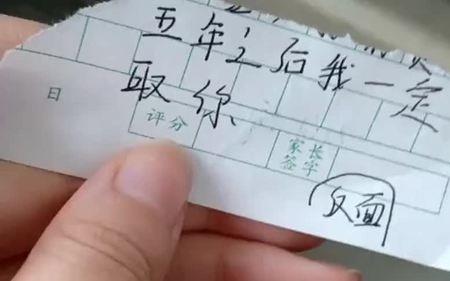 五年之后我一定
取你
日
评分
家长
签字
反面